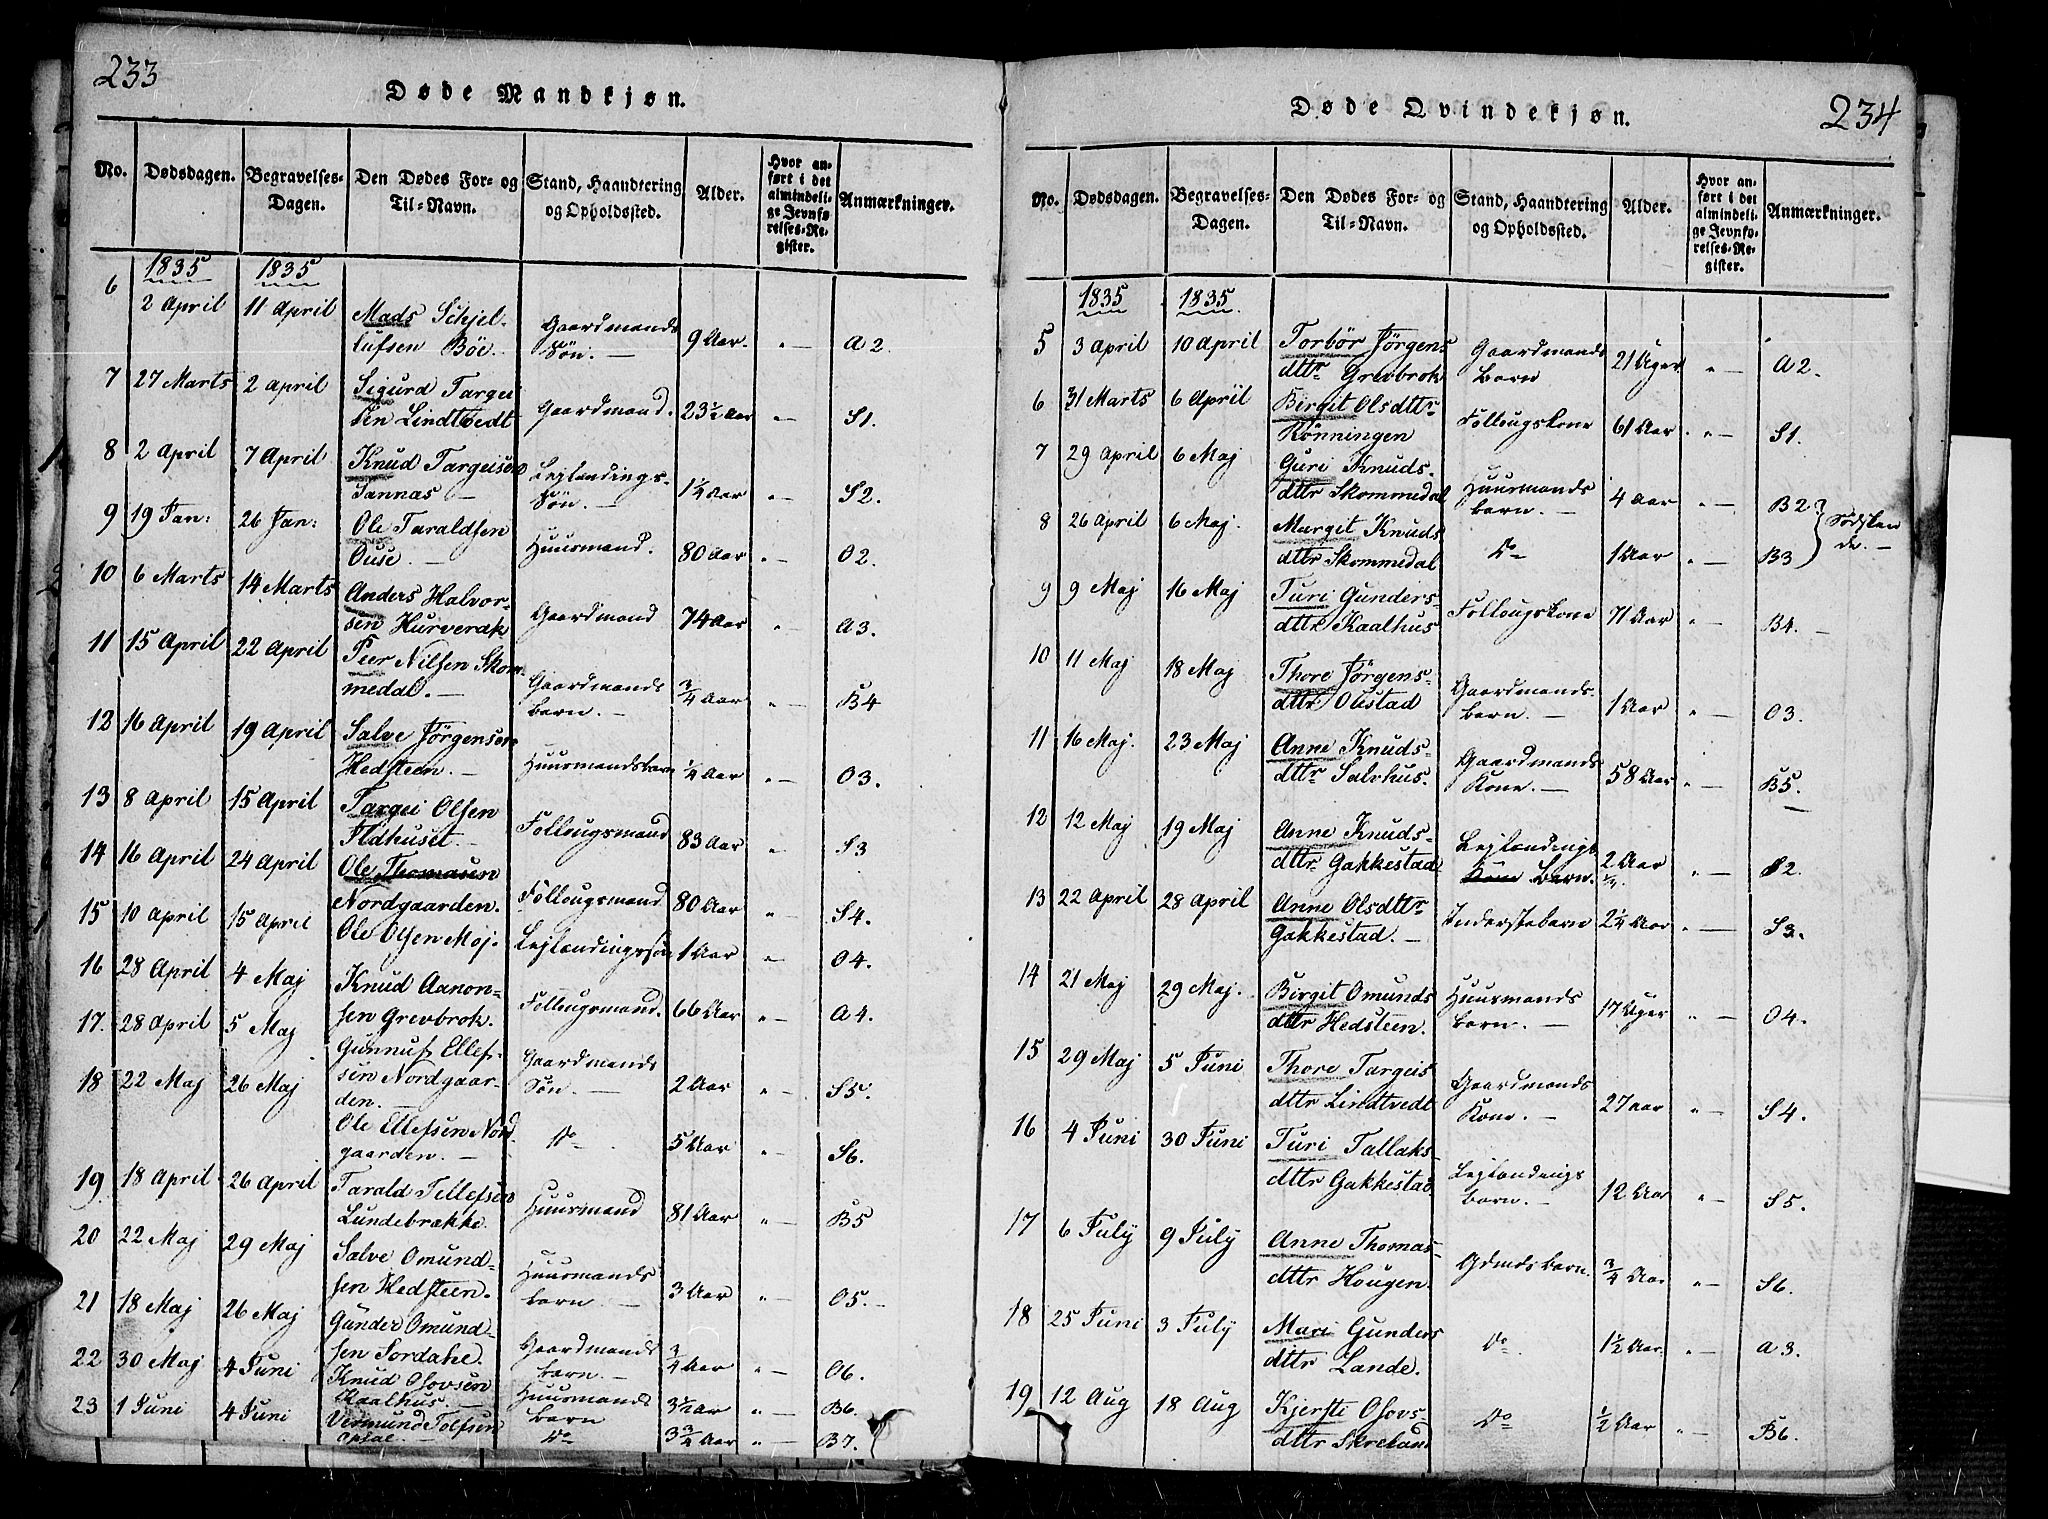 233
Døde Mandkjøn.
No. Dødsdagen. Begravelses-Dagen. Den Dødes For- og Til-Navn. Stand, Haandtering og Opholdssted. Alder. Hvor anført i det almindelige Jevnførelses-Register. Anmærkninger.
1835 1835
6 2 April 11 April Mads Schjellufsen Böe. Gaardmands Søn. — 9 Aar. " — A2.
7 27 Marts 2 April Sigurd Targeisen Lindtvedt Gaardmand. 23½ Aar " — S1.
8 2 April 7 April Knud Targeisen Sannæs — Lejlændings Søn. — 1¼ Aar " — S2.
9 19 Jan: 26 Jan: Ole Taraldsen Ouse. — Huusmand. 80 Aar " — O2.
10 6 Marts 14 Marts Anders Halvorsen Hurverak Gaardmand 74 Aar " — A3.
11 15 April 22 April Peer Nilsen Skommedal. — Gaardmands barn. — ¾ Aar " — B4
12 16 April 19 April Salve Jørgensen Hedsteen. — Huusmandsbarn ¼ Aar " — O3.
13 8 April 15 April Targei Olsen Ildhuset. — Follougsmand 83 Aar " S3
14 16 April 24 April Ole Thomasen Nordgaarden. Follougsmand 80 Aar " S4.
15 10 April 15 April Ole Olsen Moj. Lejlændingssøn 1 Aar " — O4.
16 28 April 4 Maj Knud Aanonsen Grevbrok. Follougsmand. 66 Aar " — A4.
17. 28 April 5 Maj Gunnuf Ellefsen Nordgaarden. — Gaardmands Søn. — 2 Aar " — S5.
18 22 Maj 26 Maj Ole Ellefsen Nordgaarden. — Do 5 Aar " S6.
19 18 April 26 April Tarald Tellefsen Lundebrække. Huusmand 81 Aar " — B5
20 22 Maj 29 Maj Salve Omundsen Hedsteen. Huusmands barn. — 3 Aar " — O5. —
21 18 Maj 26 Maj Gunder Omundsen Sordahl. Gaardmands barn. — ¾ Aar " — O6.
22 30 Maj 4 Juni Knud Osovsen Kaalhus. — Huusmands barn 3½ Aar " — B6.
23 1 Juni 4 Juni Vermund Tolfsen Do 3¾ Aar " — B7.
234
Døde Qvindekjøn.
No. Dødsdagen. Begravelses-Dagen. Den Dødes For- og Til-Navn. Stand, Haandtering og Opholdssted. Alder. Hvor anført i det almindelige Jevnførelses-Register. Anmærkninger.
1835 1835.
5 3 April 10 April Torbør Jörgensdttr Grevbrok Gaardmands barn 21 Uger " — A2.
6 31 Marts 6 April Birgit Olsdttr Rönningen Follougskone 61 Aar " — S1.
7 29 April 6 Maj Guri Knudsdttr Skommedal Huusmands barn. — 4 Aar " — B2 } Södskende. —
8 26 April 6 Maj. Margit Knudsdttr Skommedal Do 1 Aar " — B3
9 9 Maj 16 Maj Turi Gundersdttr Kaalhus Follougskone 71 Aar " — B4. —
10 11 Maj 18 Maj Thore Jörgensdttr Obstad Gaardmands barn. — 1 Aar " — O3.
11 16 Maj. 23 Maj Anne Knudsdttr Salvhus. Gaardmands Kone. — 58 Aar " — B5.
12 12 Maj 19 Maj Anne Knudsdttr Gakkestad Lejlændings Kone Barn. 2 Aar " — S2.
13 22 April 28 April Anne Olsdttr Gakkestad. — Inderstebarn 2¼ Aar " — S3.
14 21 Maj 29 Maj. Birgit Omundsdttr Hedsteen. Huusmands barn. — 17 Uger " — O4.
15 29 Maj 5 Juni Thore Targeisdttr Lindtvedt Gaardmands Kone. — 27 Aar " — S4.
16 4 Juni 30 Juni Turi Tallaksdttr Gakkestad Lejlændings barn. — 12 Aar " — S5.
17 6 July 9 July Anne Thomasdttr Hougen. Gdmdsbarn. ¾ Aar " — S6.
18 25 Juni 3 July Mari Gundersdttr Lande. Do. 1½ Aar. " — A3.
19 12 Aug 18 Aug Kjersti Osovsdttr Skreland Do ½ Aar " — B6.